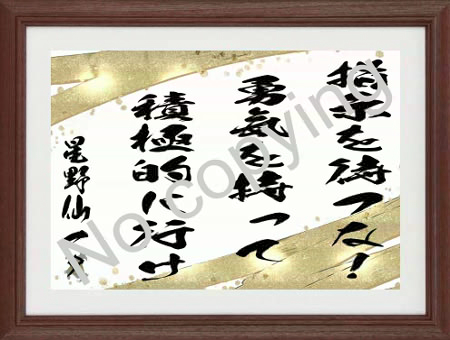 指示を待つな!
勇気を持って
積極的に行け
星野仙一
No copying